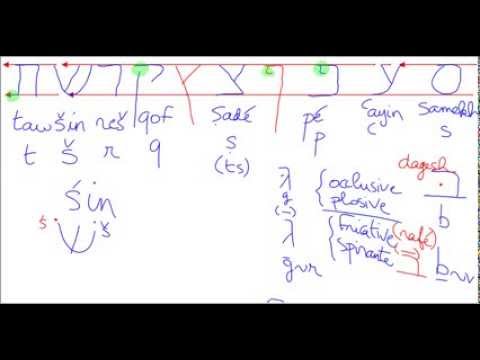 ס ע פ ף צ ץ ק ר ש ת
taw šin reš qof ṣadé pé ʿayin samekh
t š r q ṣ p c s
(ts)
dagesh
śin
occlusive
g plosive b
ś š
(–)
fricative (rafé)
spirante (=)